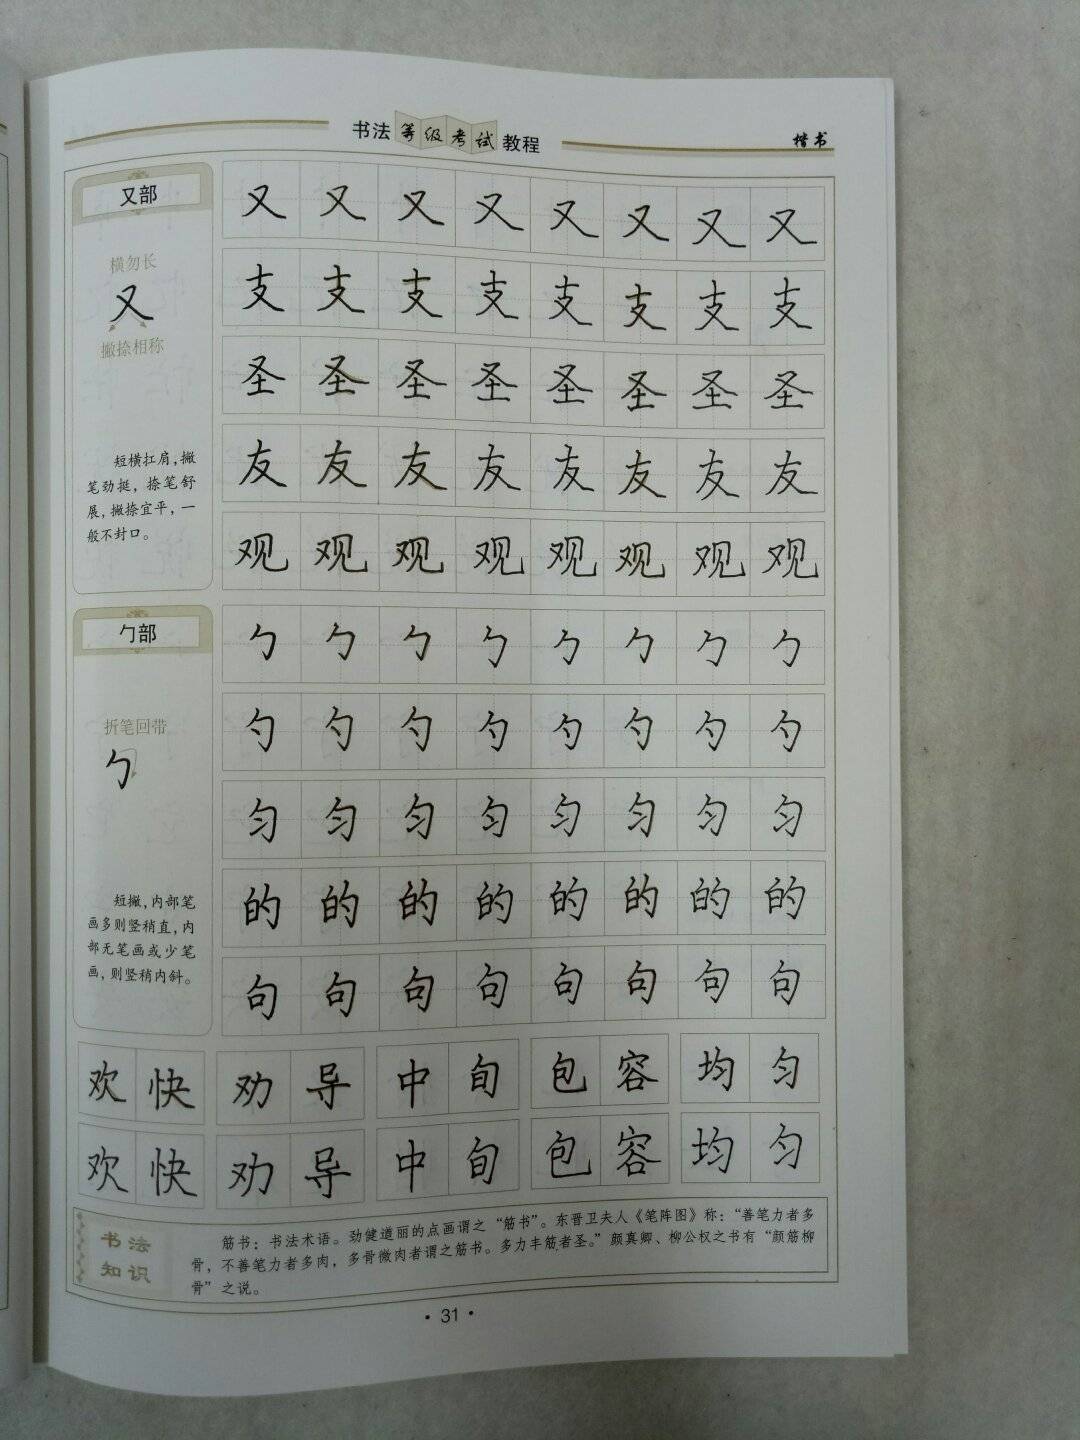 书法等级考试教程
楷书
又部
横勿长
又
撇捺相称
短横扛肩，撇
笔劲挺，捺笔舒
展，撇捺宜平，一
般不封口。
又又又又又又又又
支支支支支支支支
圣圣圣圣圣圣圣圣
友友友友友友友友
观观观观观观观观
勹部
折笔回带
勹
短撇，内部笔
画多则竖稍直，内
部无笔画或少笔
画，则竖稍内斜。
勹勹勹勹勹勹勹勹
勺勺勺勺勺勺勺勺
匀匀匀匀匀匀匀匀
的的的的的的的的
句句句句句句句句
欢快 劝导 中旬 包容 均匀
欢快 劝导 中旬 包容 均匀
书法
知识
筋书：书法术语。劲健遒丽的点画谓之“筋书”。东晋卫夫人《笔阵图》称：“善笔力者多
骨，不善笔力者多肉，多骨微肉者谓之筋书。多力丰筋者圣。”颜真卿、柳公权之书有“颜筋柳
骨”之说。
·31·